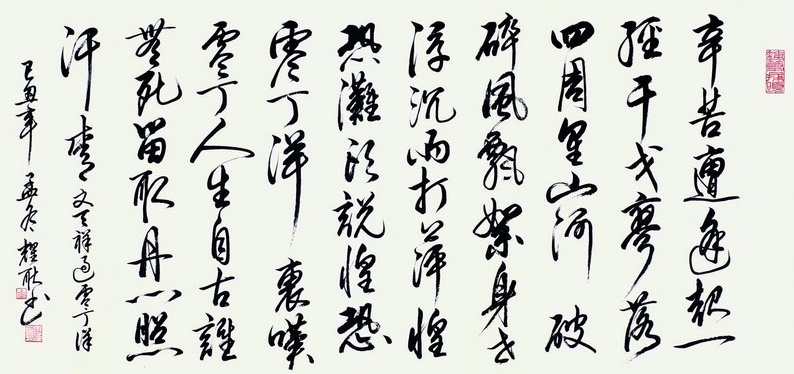 辛苦遭逢起一
經干戈寥落
四周星山河破
碎風飄絮身世
浮沉雨打萍惶
恐灘頭說惶恐
零丁洋裏嘆
零丁人生自古誰
無死留取丹心照
汗青 文天祥過零丁洋
己丑年 孟冬 耀书